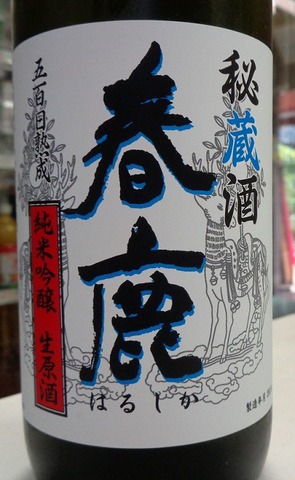 秘蔵酒
春鹿
はるしか
五百日熟成
純米吟醸 生原酒
製造年月